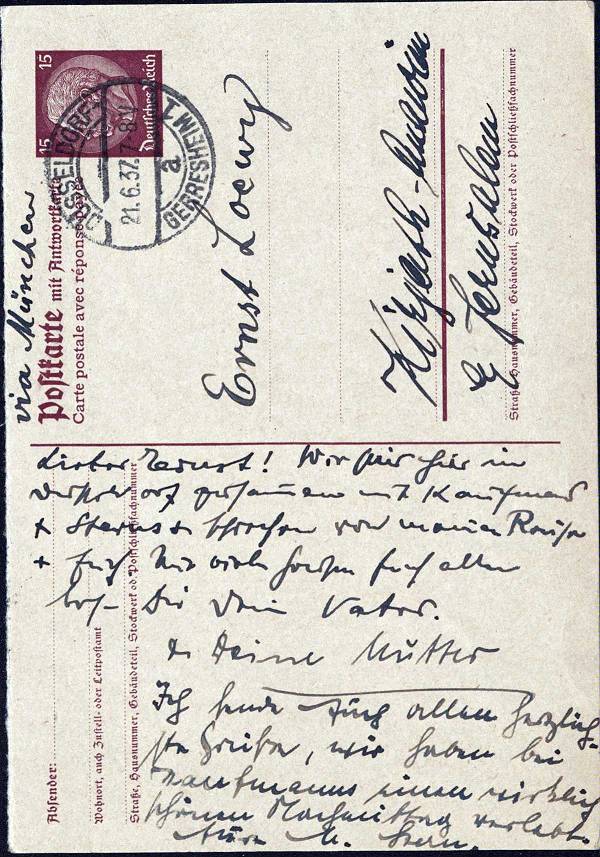 15
15
Deutsches Reich
DÜSSELDORF
GERRESHEIM 1
21.6.37. 7-8
a
via München
Postkarte mit Antwortkarte
Carte postale avec réponse payée
Ernst Loewy
Kirjath-Anavim
Jerusalem
Straße, Hausnummer, Gebäudeteil, Stockwerk oder Postschließfachnummer
Lieber Ernst! Wir sind hier in
Düsseldorf zusammen mit Kaufmanns
+ Sterns + sprechen von meiner Reise
+ Euch
Dein Vater.
Deine Mutter
Ich sende Euch allen herzlich-
ste Grüße, wir haben bei
Kaufmanns einen wirklich
schönen Nachmittag verlebt.
Stern.
Absender:
Wohnort, auch Zustell- oder Leitpostamt
Straße, Hausnummer, Gebäudeteil, Stockwerk od. Postschließfachnummer